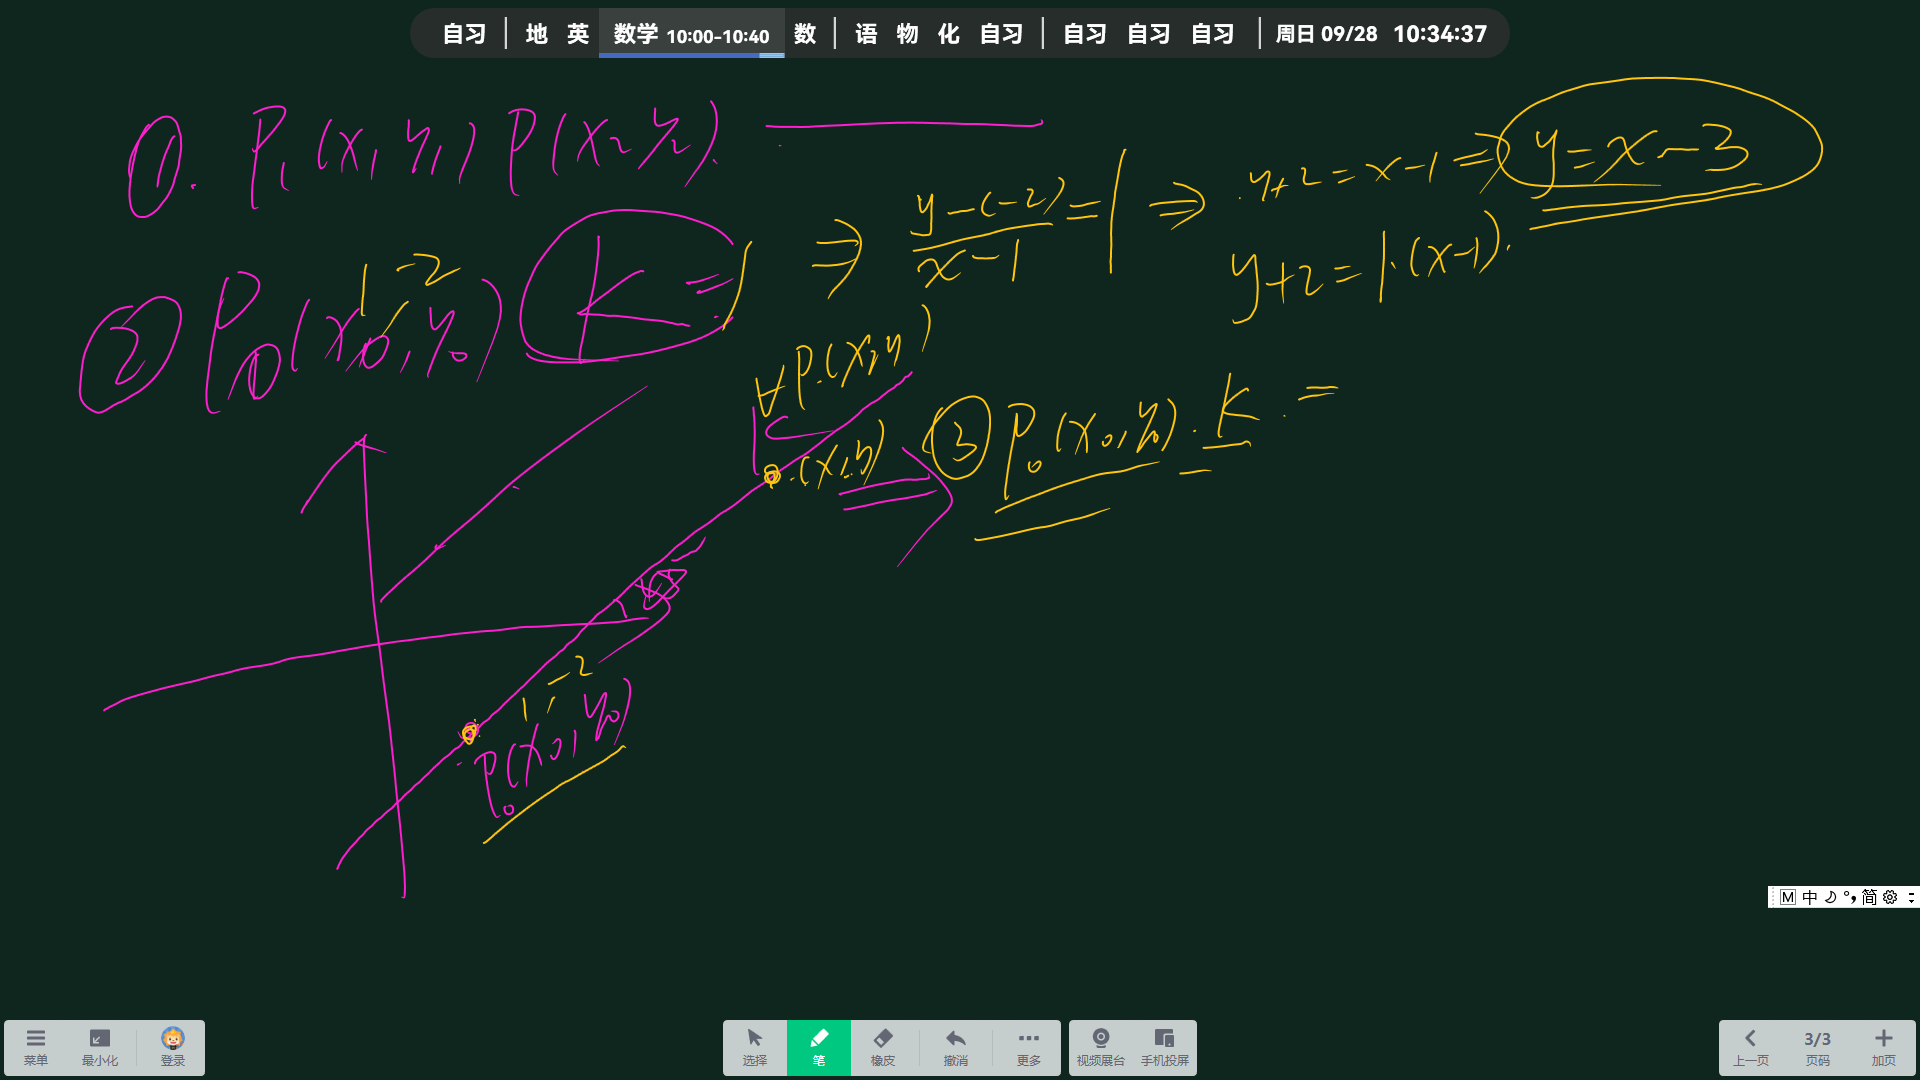 自习 | 地 英 数学 10:00-10:40 数 | 语 物 化 自习 | 自习 自习 自习 | 周日 09/28 10:34:37
①. P₁(x₁y₁) P(x₂y₂).
y+2=x-1 ⇒ y=x-3
⇒ y-(-2)/x-1 = 1 ⇒
y+2=1·(x-1).
1 -2
② P₀(x₀,y₀) K=1
∀P.(x,y)
③ P₀(x₀,y₀). K. =
.(x,y)
1,-2
P₀(x₀,y₀)
M 中 简
菜单 最小化 登录
选择 笔 橡皮 撤消 更多
视频展台 手机投屏
上一页 3/3 页码 加页